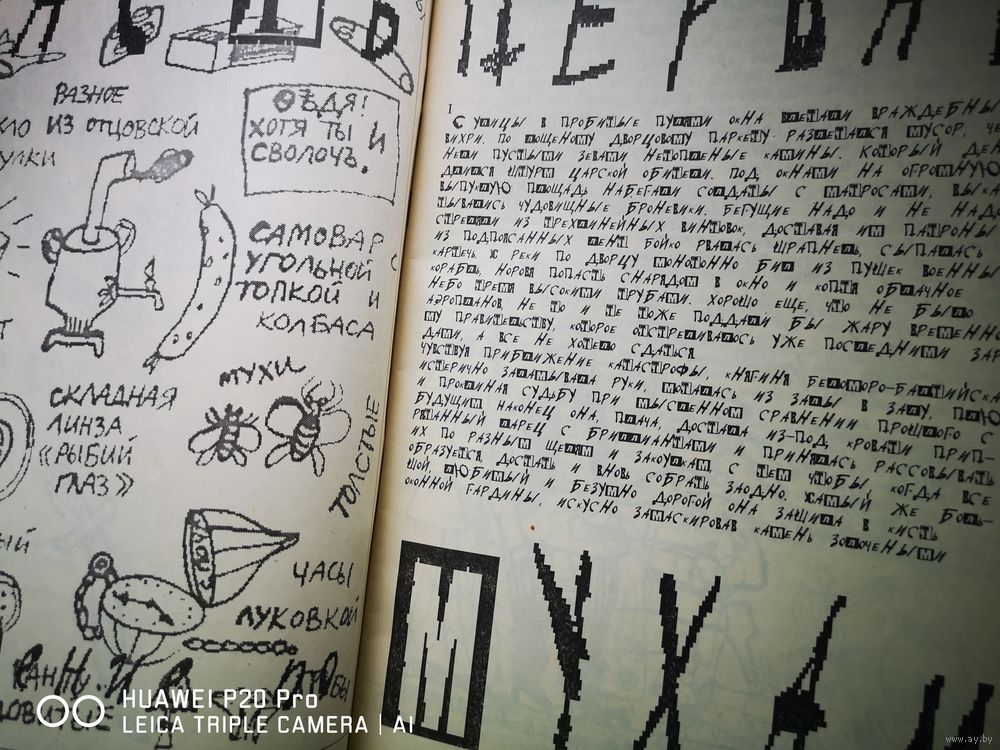 РАЗНОЕ
ИЗ ОТЦОВСКОЙ
ФЕДЯ!
ХОТЯ ТЫ И
СВОЛОЧЪ.
САМОВАР С
УГОЛЬНОЙ
ТОПКОЙ И
КОЛБАСА
МУХИ
ТОЛСТЫЕ
СКЛАДНАЯ
ЛИНЗА
«РЫБИЙ
ГЛАЗ»
ЧАСЫ
ЛУКОВКОЙ
I
С УЛИЦЫ В ПРОБИТЫЕ ПУЛЯМИ ОКНА ВЛЕТАЛИ ВРАЖДЕБНЫ
ВИХРИ. ПО ЛОЩЕНОМУ ДВОРЦОВОМУ ПАРКЕТУ РАЗЛЕТАЛСЯ МУСОР, ЧЕ
НЕЛИ ПУСТЫМИ ЗЕВАМИ НЕТОПЛЕНЫЕ КАМИНЫ. КОТОРЫЙ ДЕН
ДЛИЛСЯ ШТУРМ ЦАРСКОЙ ОБИТЕЛИ. ПОД ОКНАМИ НА ОГРОМНУЮ
ВЫПУКЛУЮ ПЛОЩАДЬ НАБЕГАЛИ СОЛДАТЫ С МАТРОСАМИ, ВЫКА
ТЫВАЛИСЬ ЧУДОВИЩНЫЕ БРОНЕВИКИ, БЕГУЩИЕ НАДО И НЕ НАДО
СТРЕЛЯЛИ ИЗ ТРЕХЛИНЕЙНЫХ ВИНТОВОК, ДОСТАВАЯ ИМ ПАТРОНЫ
ИЗ ПОДПОЯСАННЫХ ЛЕНТ. БОЙКО РВАЛАСЬ ШРАПНЕЛЬ, СЫПАЛАСЬ
КАРТЕЧЬ. С РЕКИ ПО ДВОРЦУ МОНОТОННО БИЛ ИЗ ПУШЕК ВОЕННЫ
КОРАБЛЬ, НОРОВЯ ПОПАСТЬ СНАРЯДОМ В ОКНО И КОПТЯ ОБЛАЧНОЕ
НЕБО ТРЕМЯ ВЫСОКИМИ ТРУБАМИ. ХОРОШО ЕЩЕ, ЧТО НЕ БЫЛО
АЭРОПЛАНОВ, НЕ ТО И ТЕ ТОЖЕ ПОДДАЛИ БЫ ЖАРУ ВРЕМЕННО
МУ ПРАВИТЕЛЬСТВУ, КОТОРОЕ ОТСТРЕЛИВАЛОСЬ УЖЕ ПОСЛЕДНИМИ ЗАР
ДАМИ, А ВСЕ НЕ ХОТЕЛО СДАТЬСЯ
ЧУВСТВУЯ ПРИБЛИЖЕНИЕ КАТАСТРОФЫ, КНЯГИНЯ БЕЛОМОРО-БАЛТИЙСКА
ИСТЕРИЧНО ЗАЛАМЫВАЛА РУКИ, МОТАЛАСЬ ИЗ ЗАЛЫ В ЗАЛУ, ПЛЮ
И ПРОКЛИНАЯ СУДЬБУ ПРИ МЫСЛЕННОМ СРАВНЕНИИ ПРОШЛОГО С
БУДУЩИМ НАКОНЕЦ ОНА, ПЛАЧА, ДОСТАЛА ИЗ-ПОД КРОВАТИ ПРИП-
РЯТАННЫЙ ЛАРЕЦ С БРИЛЛИАНТАМИ И ПРИНЯЛАСЬ РАССОВЫВАТЬ
ИХ ПО РАЗНЫМ ЩЕЛЯМ И ЗАКОУЛКАМ, С ТЕМ ЧТОБЫ, КОГДА ВСЕ
ОБРАЗУЕТСЯ, ДОСТАТЬ И ВНОВЬ СОБРАТЬ ЗАОДНО. САМЫЙ ЖЕ БОЛЬ-
ШОЙ, ЛЮБИМЫЙ И БЕЗУМНО ДОРОГОЙ ОНА ЗАШИЛА В КИСТЬ
ОКОННОЙ ГАРДИНЫ, ИСКУСНО ЗАМАСКИРОВАВ КАМЕНЬ ЗОЛОЧЕНЫМИ
HUAWEI P20 Pro
LEICA TRIPLE CAMERA | AI
www.ay.by